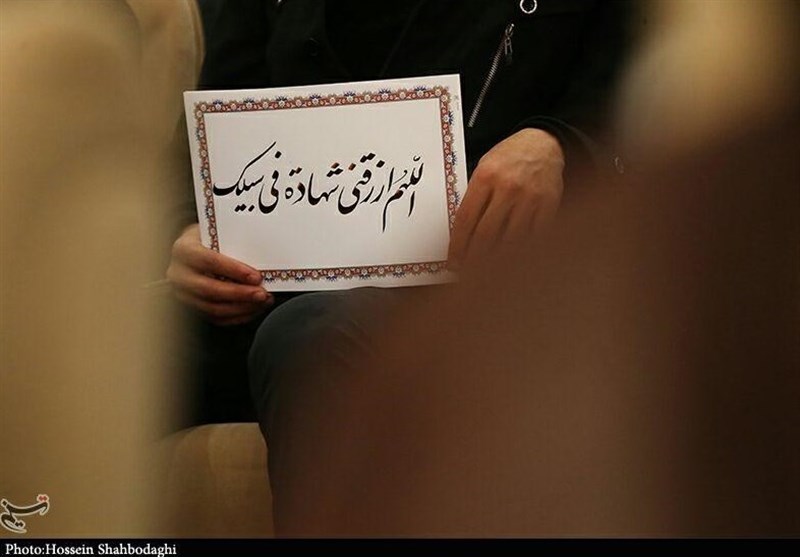 اللّهُم ارزقنی شهادة فی سبیلک
تسنیم
Photo:Hossein Shahbodaghi